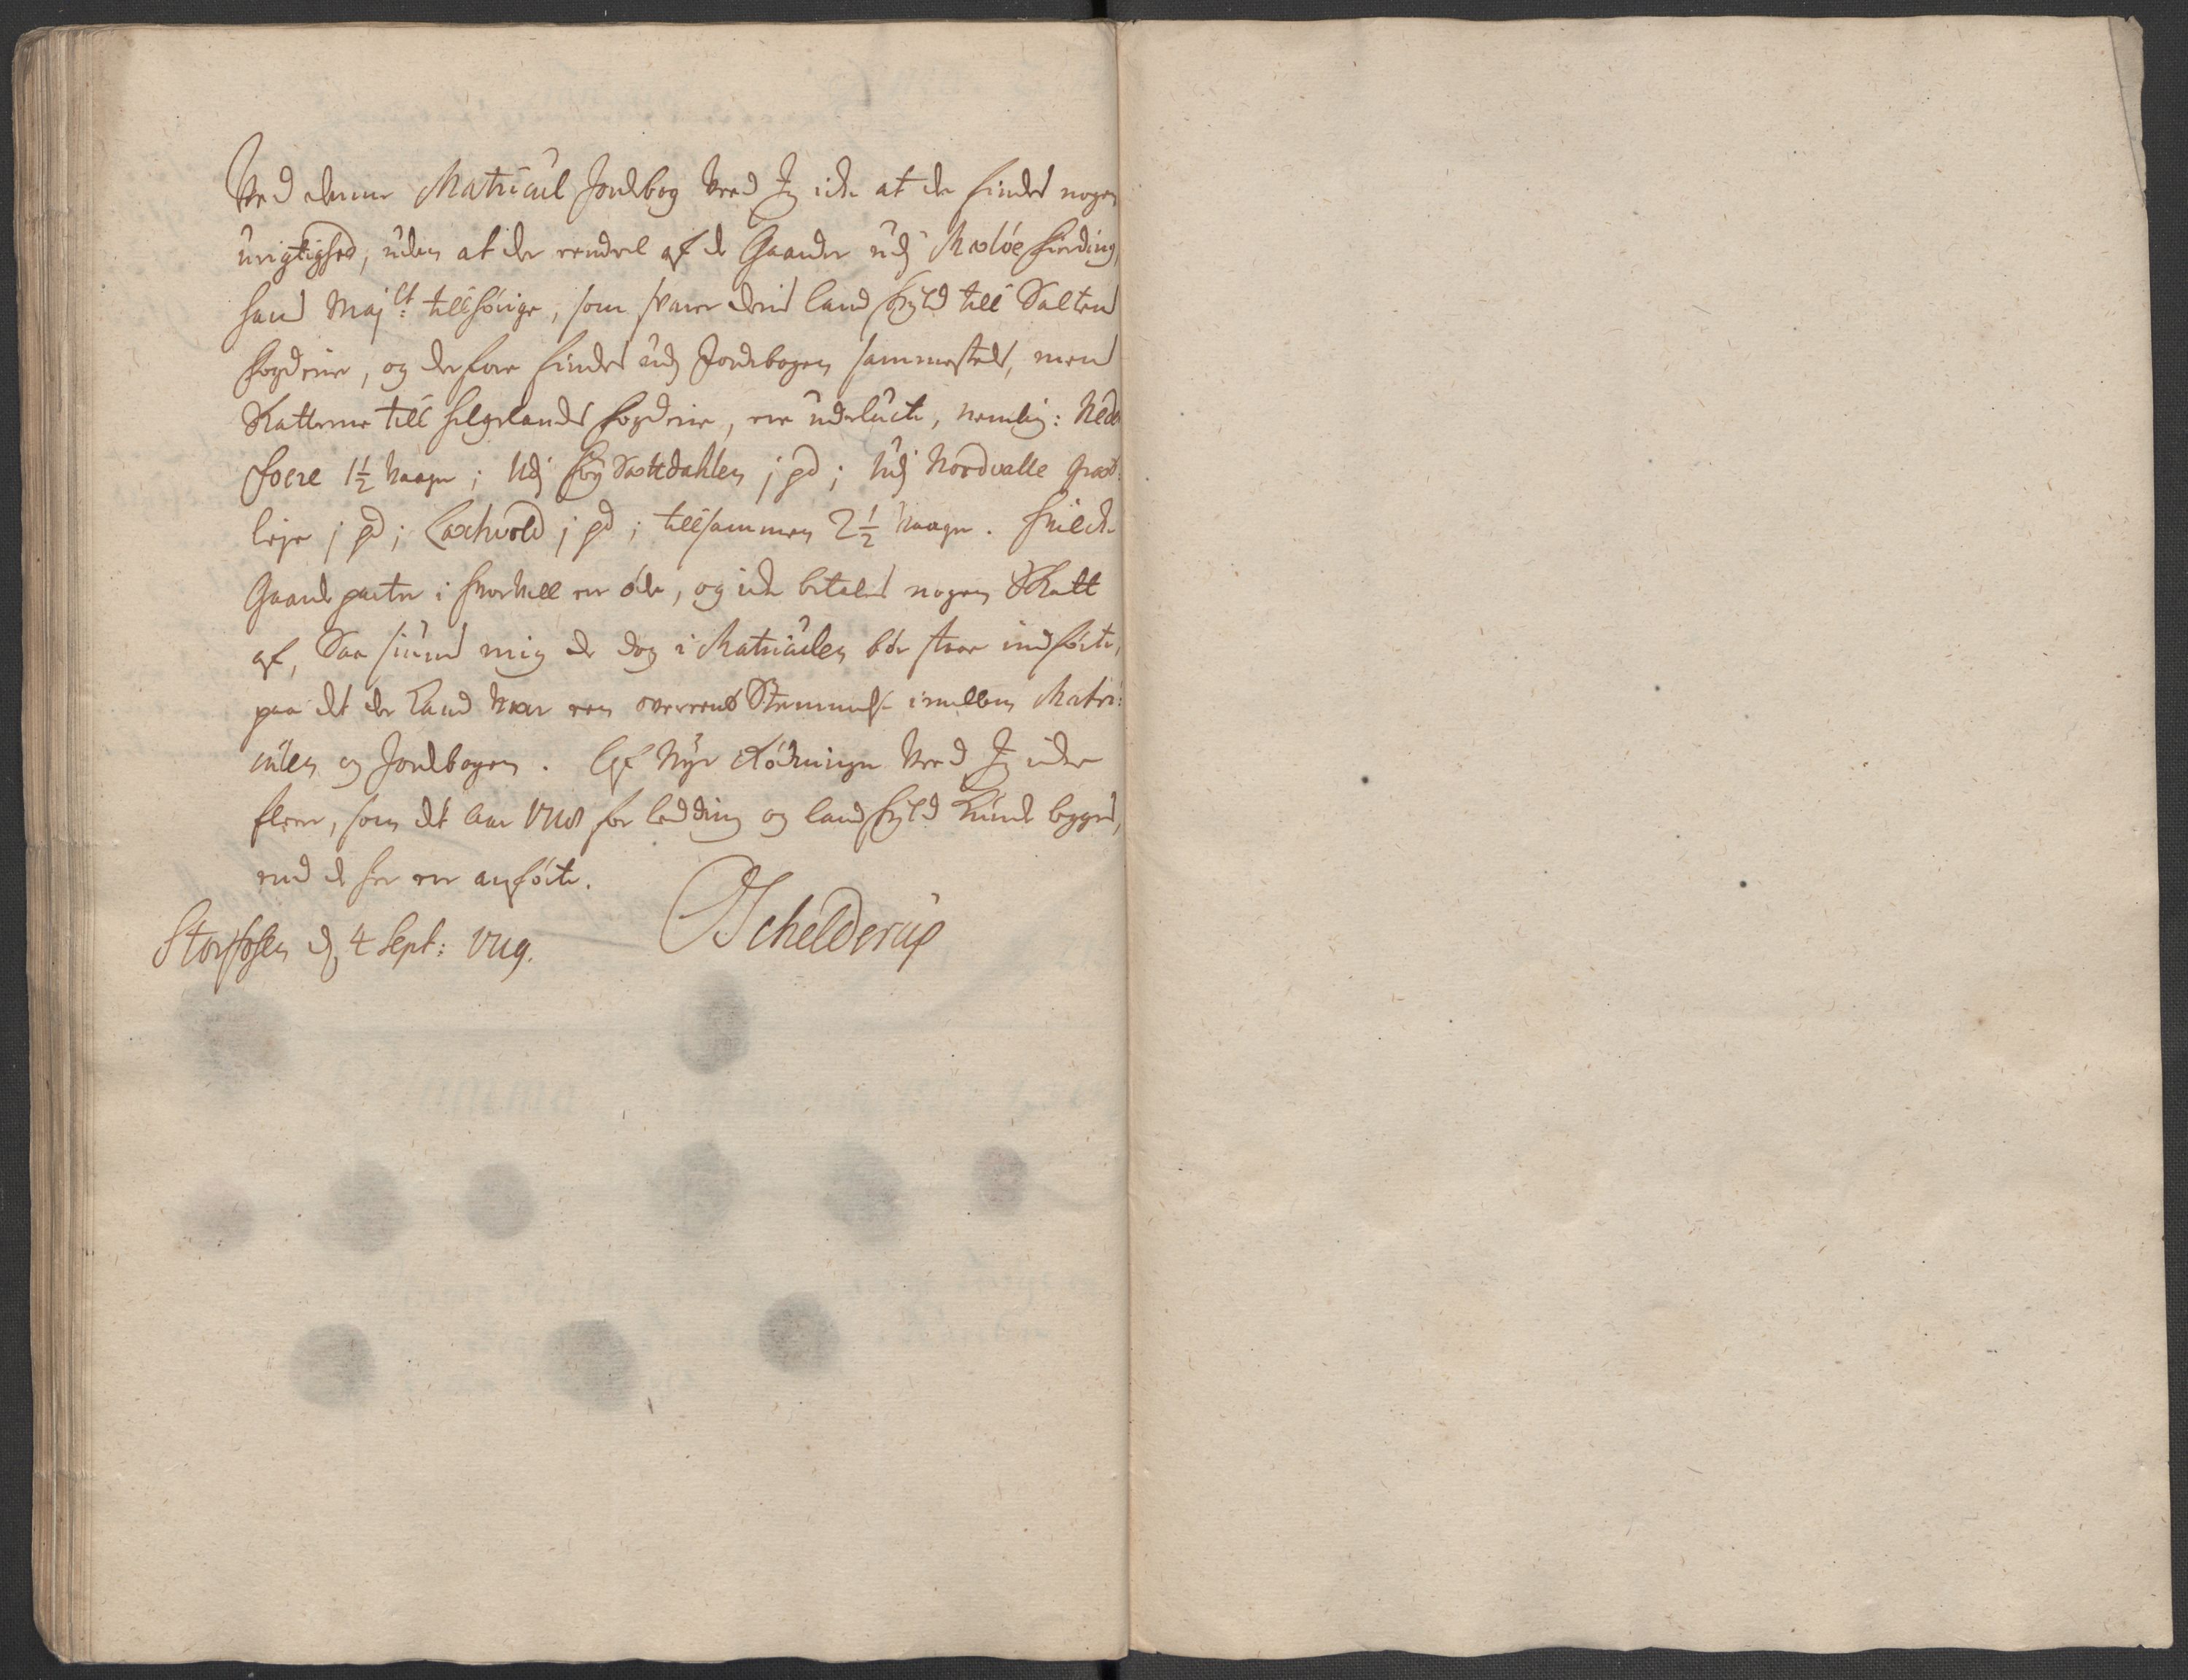 Ved denne Matricul Jordbog veed Jeg icke at der findes nogen
urigtighed, uden at der eendeel af de Gaarder udj Meløe fierding,
hans Maj<sup>tt</sup>: tilhørige, som svarer deris landskyld till Saltens
fogderie, og derfore findes udj Jordebogen sammesteds, mens
Skatterne till Helgelands fogderie, ere udeluckte, nemlig:
Foere 1½ Vaager; Udj 1 pd; Udj Nordvalle Graad
leje 1 pd; 1 pd; tillsammen 2½ Vaager. Hvilcke
Gaardeparter i hvorvell ere øde, og icke betales nogen Skatt
af, Saa siunes mig de dog i Matriculen bør staae indførte,
paa det der kand være een overeens Stemmelse imellem Matri:
culen og Jordbogen. Af Nye Rødninger veed Jeg icke
fleere, som det Aar 1718 for ledding og landskyld kunde bygges,
end de her ere anførte.
Storfosen d. 4 Sept: 1719.
Schelderup